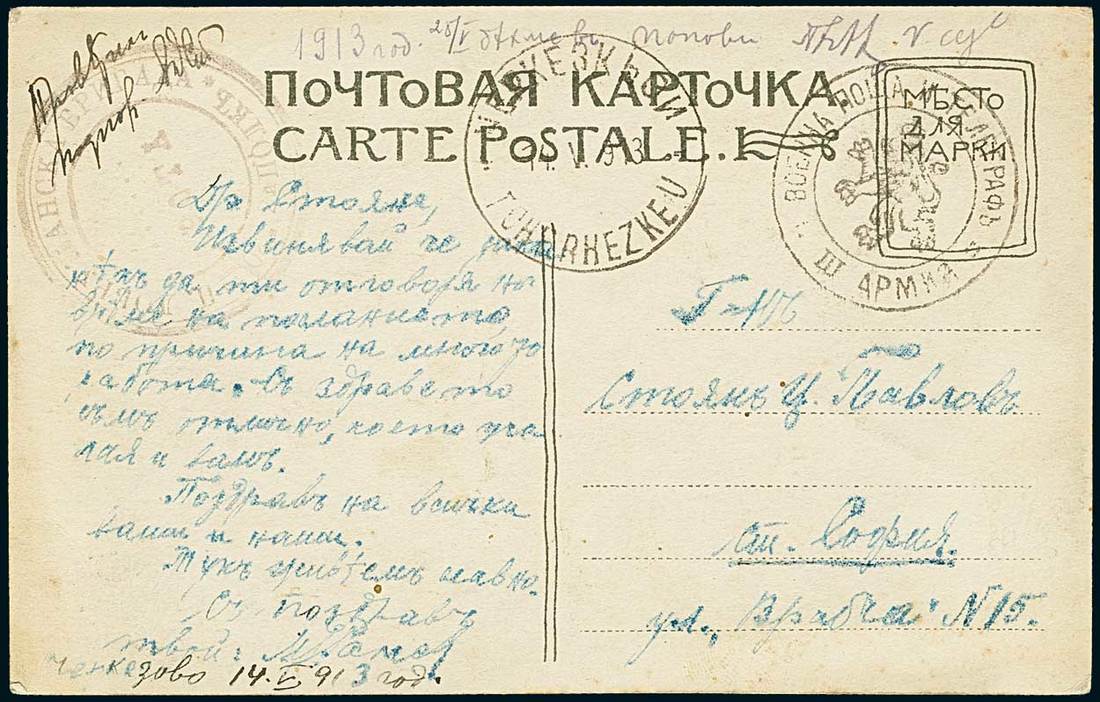 1913 год. 28/V Попови
ПОЧТОВАЯ КАРТОЧКА.
CARTE POSTALE.
МѢСТО
ДЛЯ
МАРКИ
ЧЕРКЕЗКЬОЙ
14.V.913
TCHERKEZKEU
ВОЕННА ПОЩА И ТЕЛЕГРАФЪ
III АРМИЯ
Др. Стояне,
Извинявай че
да ти отговоря на
време на посланието,
по причина на много ра
бота. Съ здравето
съмъ отлично, което же
лая и вамъ.
Поздравъ на всички
ваши и наши.
Тукъ славно.
Съ поздравъ
твой:
Черкезово 14.V.913 год.
Г-нъ
Стоянъ Ц. Павловъ
ст. София.
ул. „Врабча" N 15.